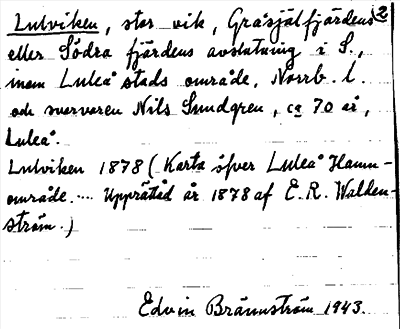 Lulviken, stor vik, Gråsjälfjärdens 2
eller Södra fjärdens avslutning i S.,
inom Luleå stads område, Norrb. l.
och svarvaren Nils Sundgren, ca 70 år,
Luleå.
Lulviken 1878 (Karta öfver Luleå Hamn-
område. .... Upprättad år 1878 af E. R. Walden-
ström.)
Edvin Brännström 1943.